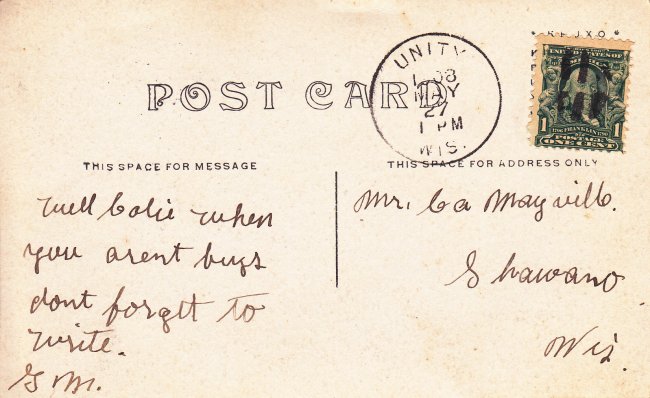 * K R U X O *
UNITY
1908
MAY
27
1 PM
WIS.
POST CARD
FRANKLIN
POSTAGE
1 ONE CENT 1
THIS SPACE FOR MESSAGE
THIS SPACE FOR ADDRESS ONLY
well Colie when
you arent buys
dont forgtt to
write.
G M.
Mr. Ca Mayville.
Shawano
Wis.